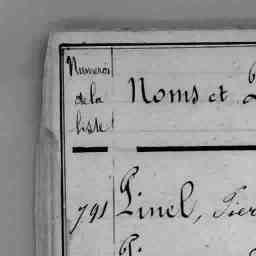 Numéros
de la
liste
Noms et
791
Pinel,